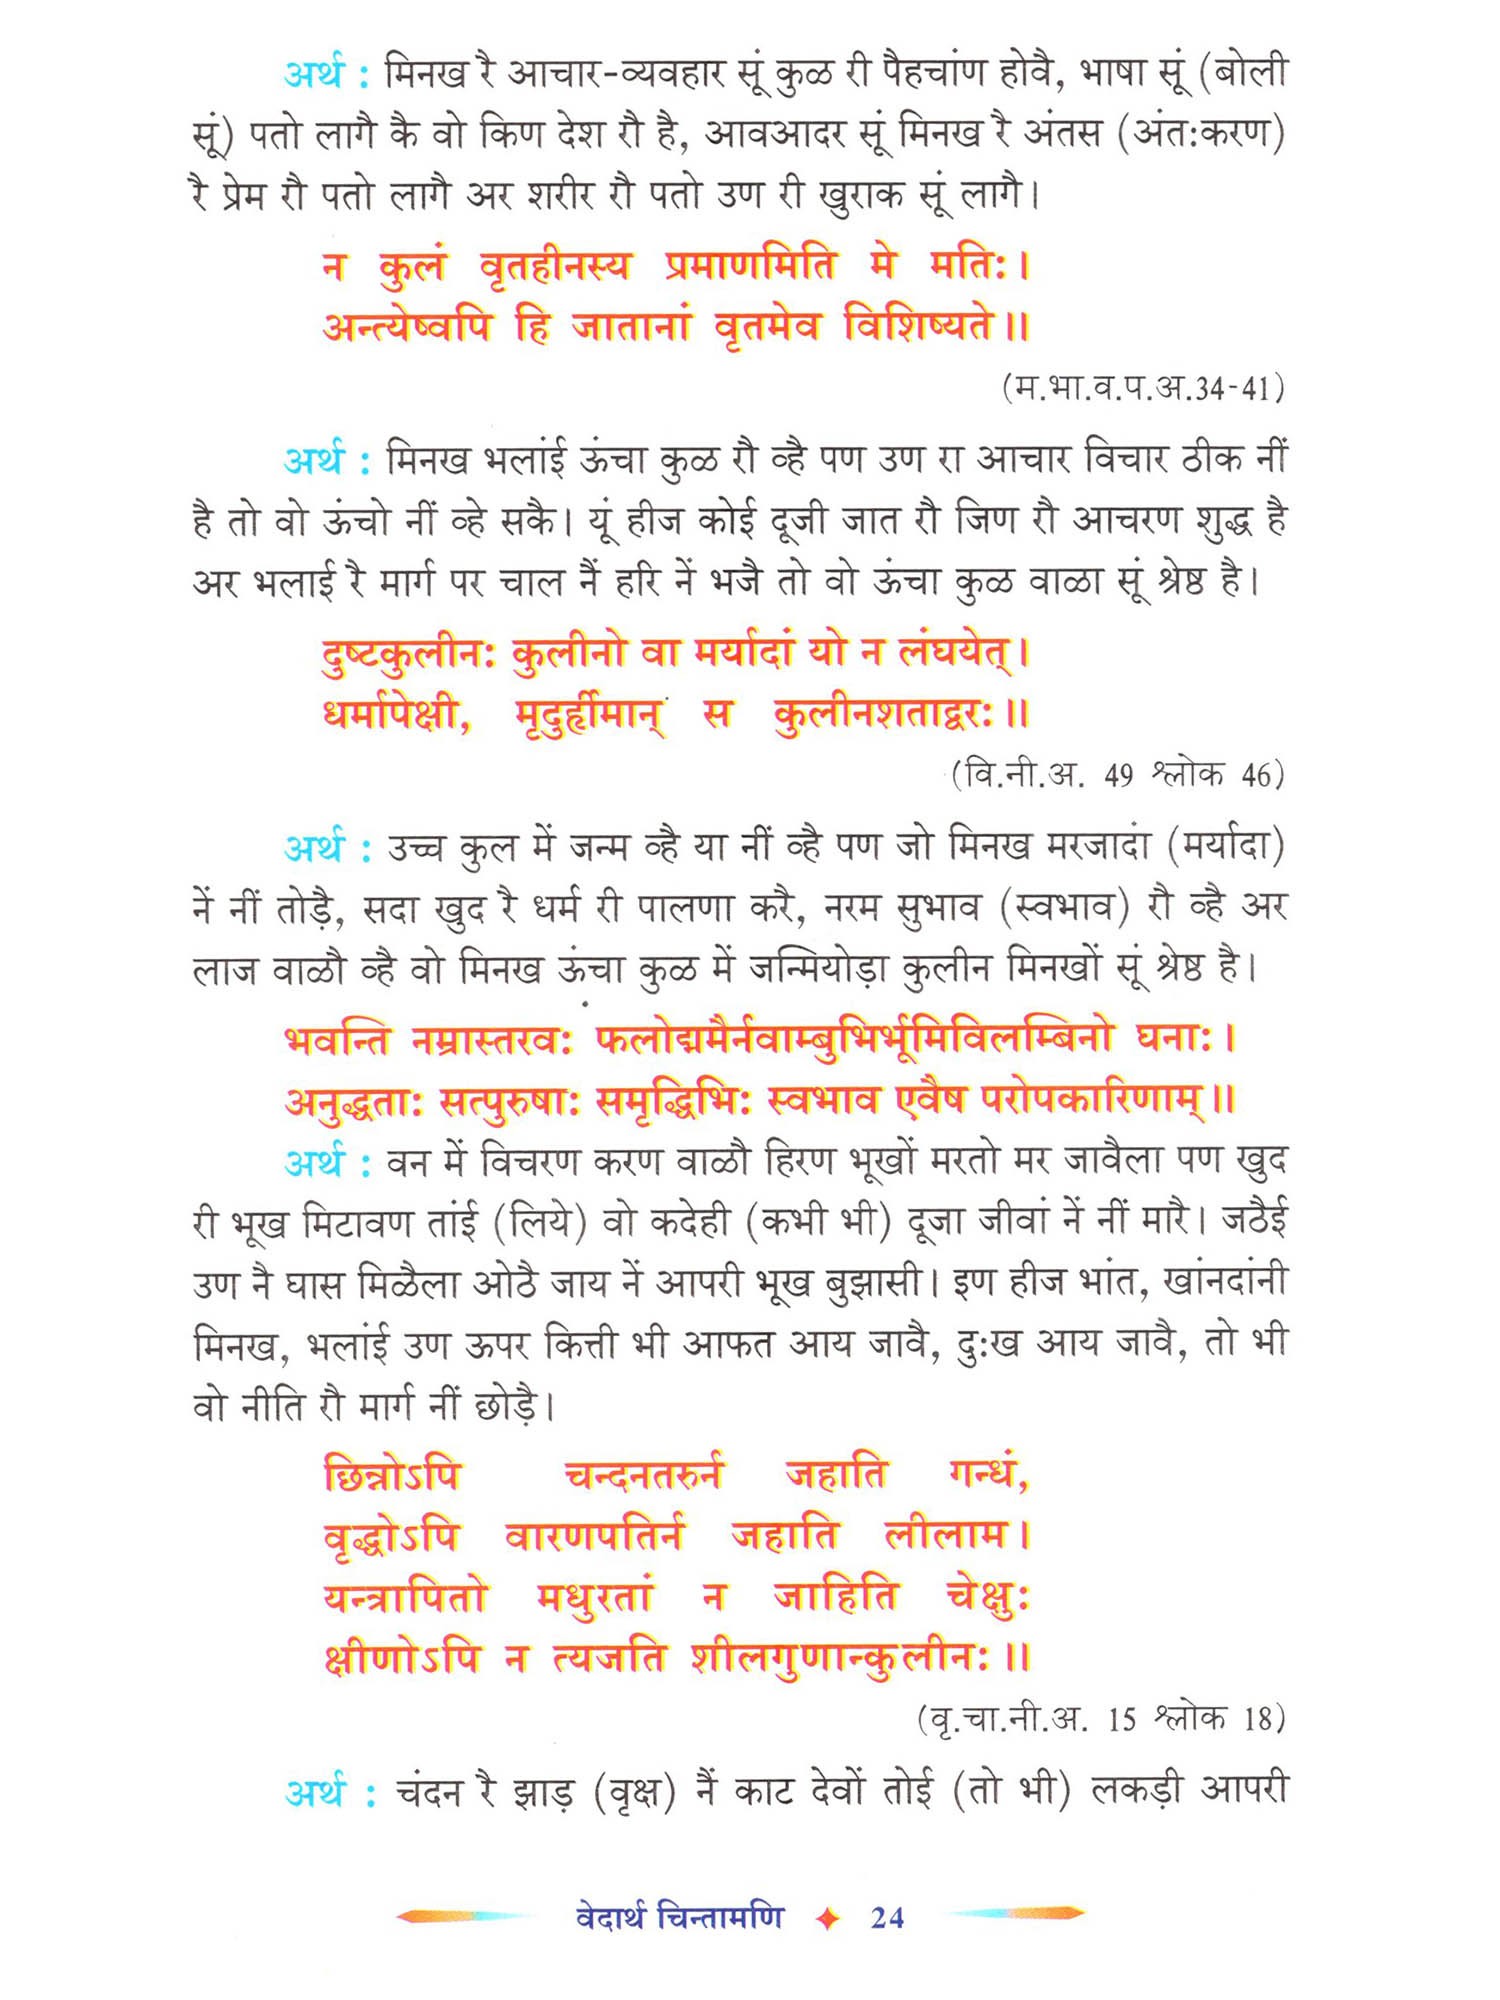 अर्थ : मिनख रै आचार-व्यवहार सूं कुळ री पैहचांण होवै, भाषा सूं (बोली
सूं) पतो लागै कै वो किण देश रौ है, आवआदर सूं मिनख रै अंतस (अंत:करण)
रै प्रेम रौ पतो लागै अर शरीर रौ पतो उण री खुराक सूं लागै।
न कुलं वृतहीनस्य प्रमाणमिति मे मति:।
अन्त्येष्वपि हि जातानां वृतमेव विशिष्यते॥
(म.भा.व.प.अ.34-41)
अर्थ : मिनख भलांई ऊंचा कुळ रौ व्है पण उण रा आचार विचार ठीक नीं
है तो वो ऊंचो नीं व्हे सकै। यूं हीज कोई दूजी जात रौ जिण रौ आचरण शुद्ध है
अर भलाई रै मार्ग पर चाल नैं हरि नें भजै तो वो ऊंचा कुळ वाळा सूं श्रेष्ठ है।
दुष्टकुलीन: कुलीनो वा मर्यादां यो न लंघयेत्।
धर्मापेक्षी, मृदुर्ह्रीमान् स कुलीनशताद्वर:॥
(वि.नी.अ. 49 श्लोक 46)
अर्थ : उच्च कुल में जन्म व्है या नीं व्है पण जो मिनख मरजादां (मर्यादा)
नें नीं तोड़ै, सदा खुद रै धर्म री पालणा करै, नरम सुभाव (स्वभाव) रौ व्है अर
लाज वाळौ व्है वो मिनख ऊंचा कुळ में जन्मियोड़ा कुलीन मिनखों सूं श्रेष्ठ है।
भवन्ति नम्रास्तरव: फलोद्गमैर्नवाम्बुभिर्भूमिविलम्बिनो घना:।
अनुद्धता: सत्पुरुषा: समृद्धिभि: स्वभाव एवैष परोपकारिणाम्॥
अर्थ : वन में विचरण करण वाळौ हिरण भूखों मरतो मर जावैला पण खुद
री भूख मिटावण तांई (लिये) वो कदेही (कभी भी) दूजा जीवां नें नीं मारै। जठैई
उण नै घास मिळैला ओठै जाय नें आपरी भूख बुझासी। इण हीज भांत, खांनदांनी
मिनख, भलांई उण ऊपर कित्ती भी आफत आय जावै, दु:ख आय जावै, तो भी
वो नीति रौ मार्ग नीं छोड़ै।
छिन्नोऽपि चन्दनतरुर्न जहाति गन्धं,
वृद्धोऽपि वारणपतिर्न जहाति लीलाम।
यन्त्रापितो मधुरतां न जाहिति चेक्षु:
क्षीणोऽपि न त्यजति शीलगुणान्कुलीन:॥
(वृ.चा.नी.अ. 15 श्लोक 18)
अर्थ : चंदन रै झाड़ (वृक्ष) नैं काट देवों तोई (तो भी) लकड़ी आपरी
वेदार्थ चिन्तामणि 24